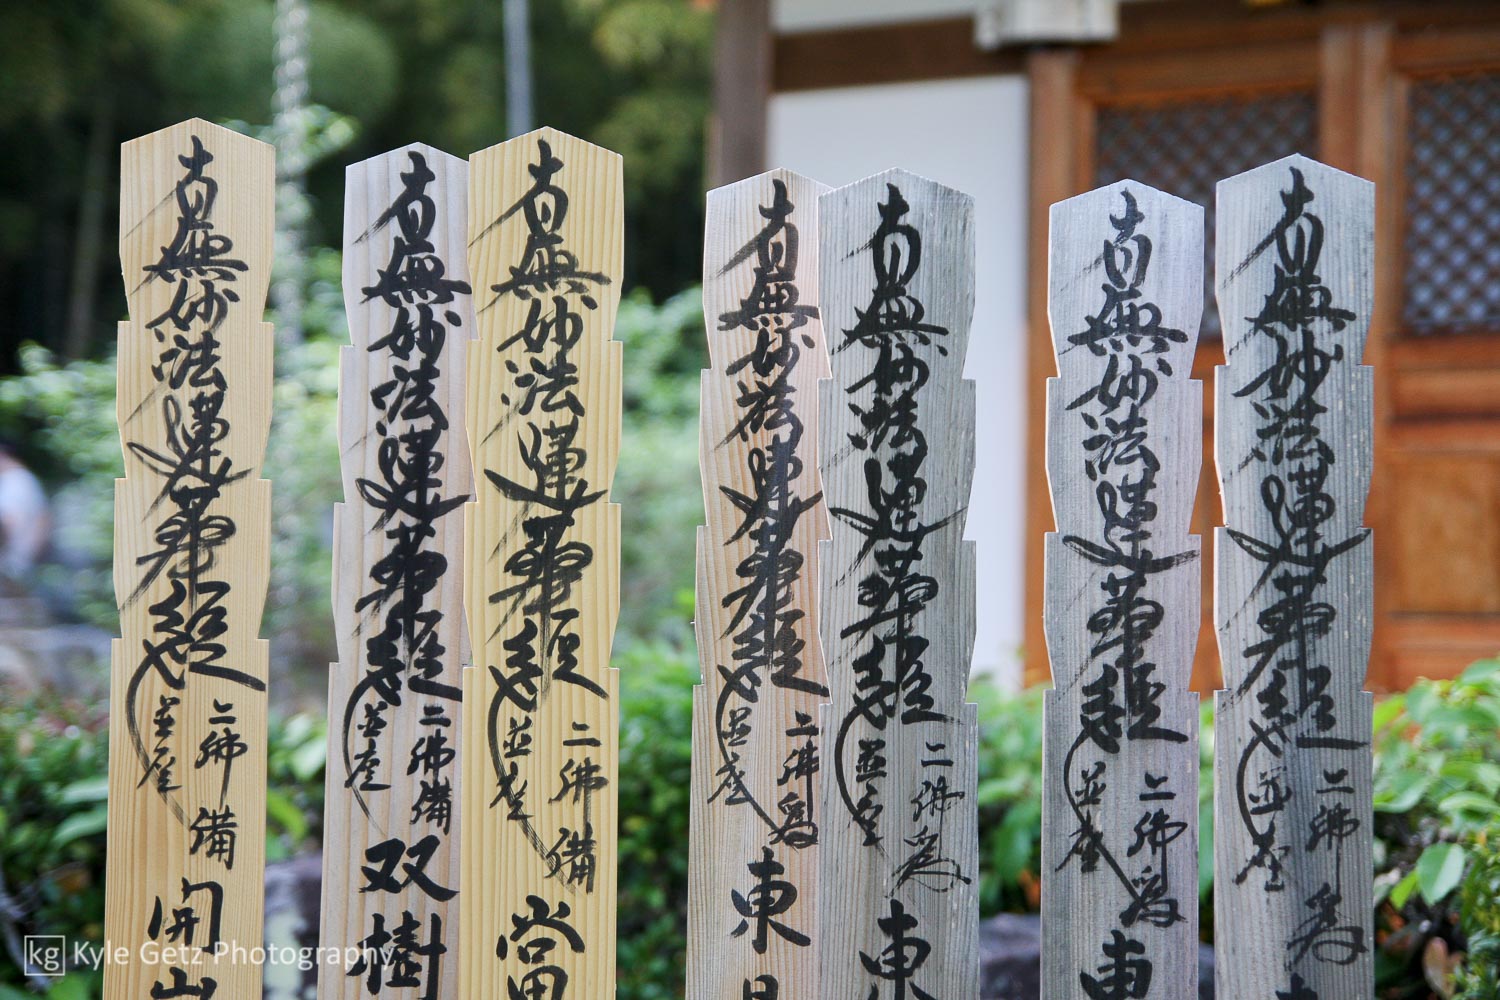 南無妙法蓮華経
二佛
並座
備
開山
南無妙法蓮華経
二佛
並座
備
双樹
南無妙法蓮華経
二佛
並座
備
當
南無妙法蓮華経
二佛
並座
為
東
南無妙法蓮華経
二佛
並座
為
東
南無妙法蓮華経
二佛
並座
為
東
南無妙法蓮華経
二佛
並座
為
kg Kyle Getz Photography